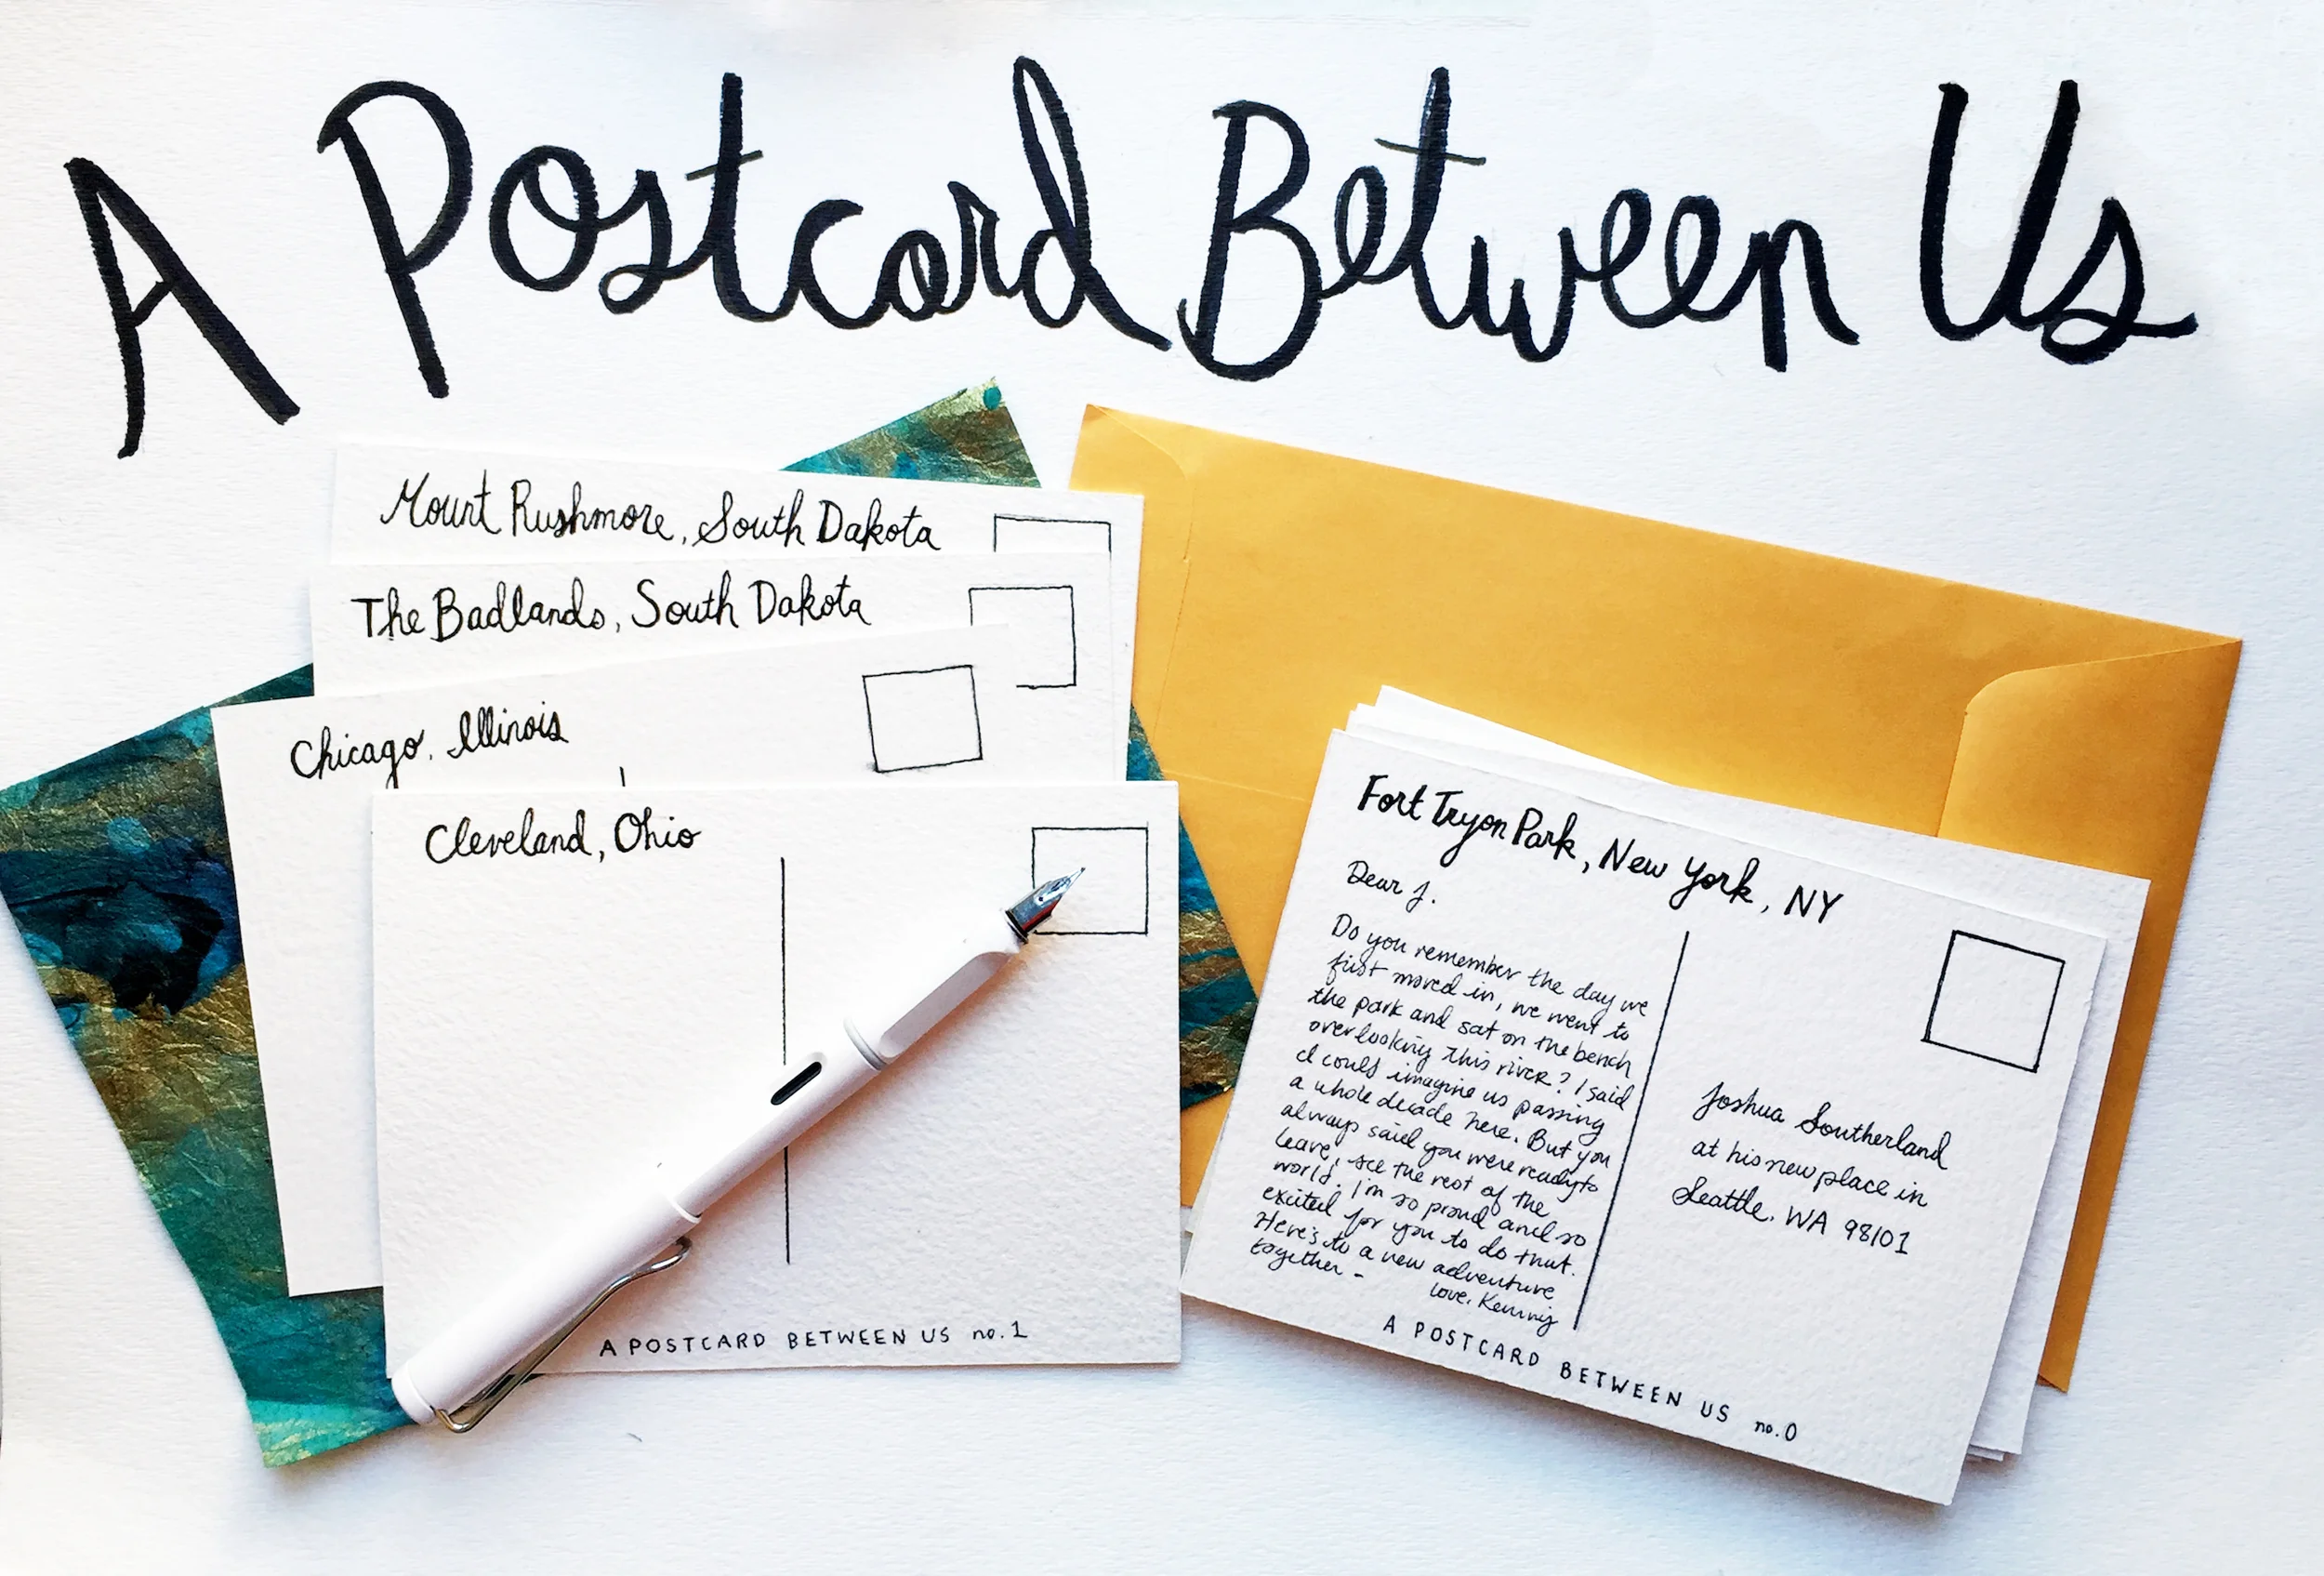 A Postcard Between Us
Mount Rushmore, South Dakota
The Badlands, South Dakota
Chicago, Illinois
Cleveland, Ohio
A POSTCARD BETWEEN US no. 1
Fort Tryon Park, New York, NY
Dear J.
Do you remember the day we
first moved in, we went to
the park and sat on the bench
overlooking this river? I said
I could imagine us passing
a whole decade here. But you
always said you were ready to
leave, see the rest of the
world. I'm so proud and so
excited for you to do that.
Here's to a new adventure
together –
Love,
Joshua Southerland
at his new place in
Seattle, WA 98101
A POSTCARD BETWEEN US no. 0